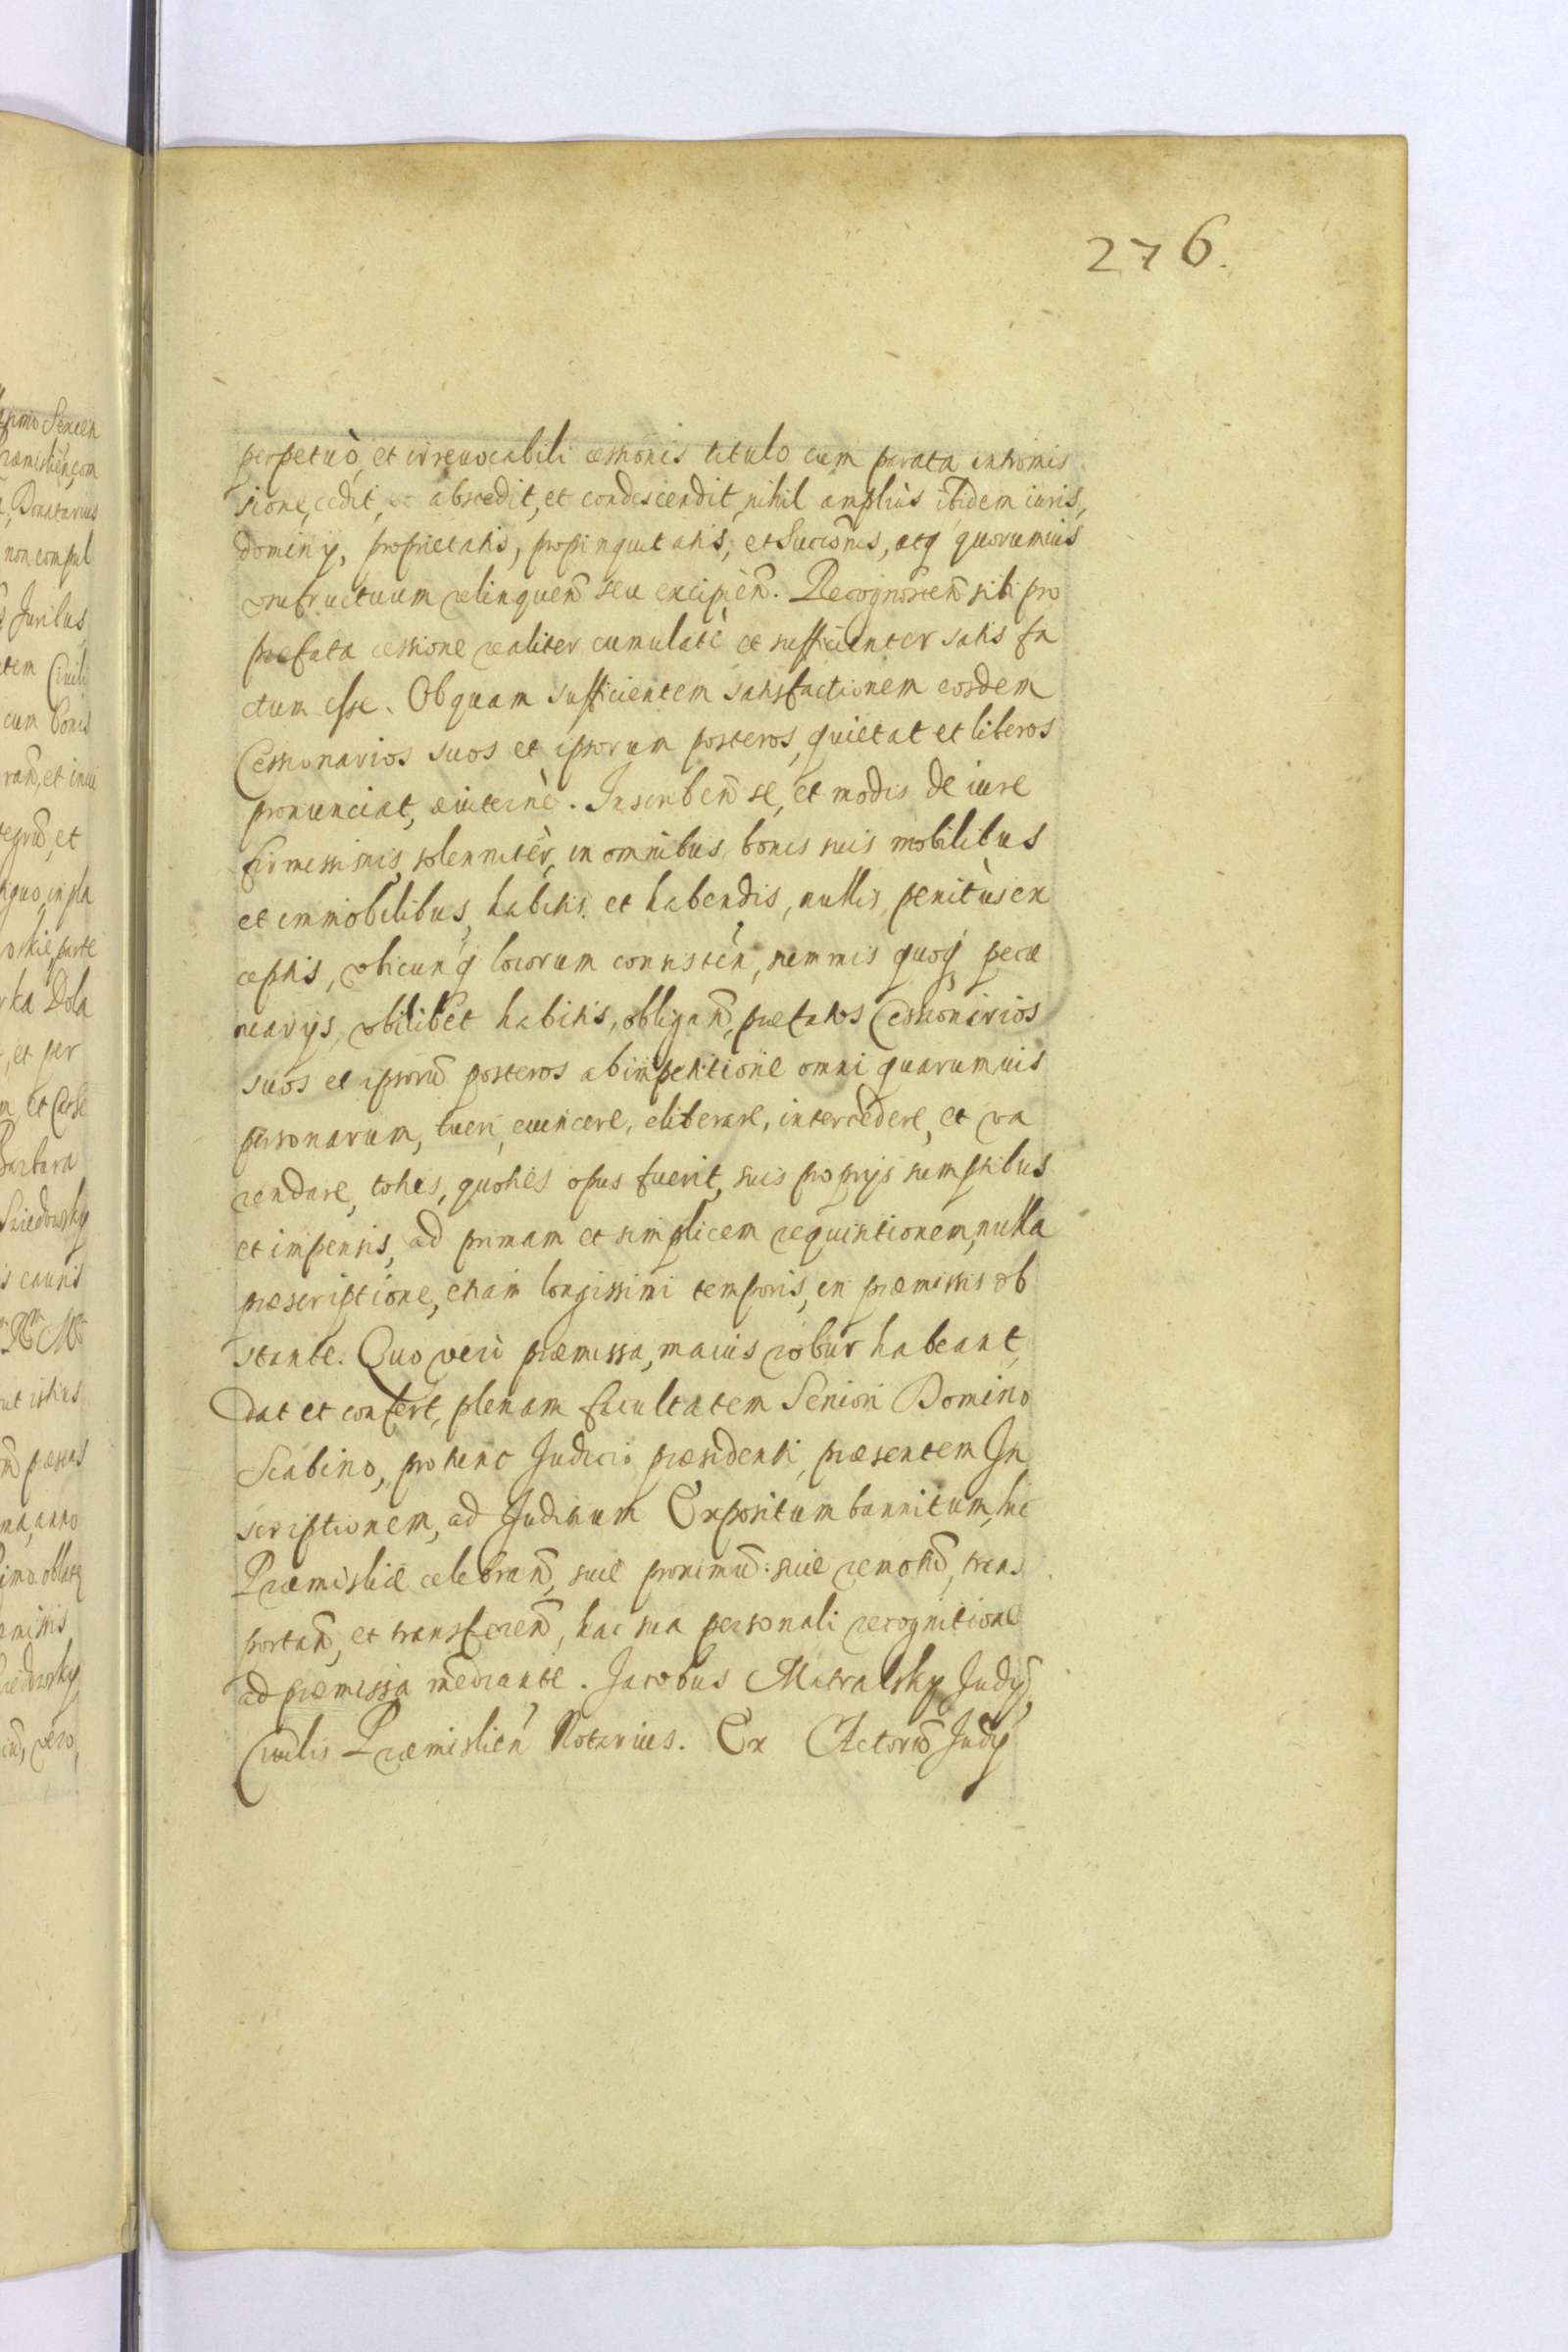 276.
perpetuò, et irreuocabili cessionis titulo cum parata intromis
sione, cedit, et abscedit, et condescendit, nihil ampliùs ibidem iuris,
dominy, proprietatis, propinquitatis, et Succionis, atq quorumuis
usufructuum relinquen̄ seu excipien̄. Recognoscen̄ sibi pro
præfata cessione realiter cumulatè et sufficienter satis fa
ctum esse. Ob quam sufficientem satisfactionem eosdem
Cessionarios suos et ipsorum posteros, quietat et liberos
pronunciat, æuiternè. Inscriben̄ se, et modis de iure
firmissimis, solenniter, in omnibus bonis suis mobilibus
et immobilibus, habitis et habendis, nullis, penitùs ex
ceptis, vbicunq́ locorum consisteń, summis quoq́ pecu
niarys, vbilibet habitis, obligan̄, præfatos Cessionarios
suos et ipsorū posteros ab impetitione omni quarumuis
personarum, tueri, euincere, eliberare, intercedere, et va
rendare, toties, quoties opus fuerit, suis proprijs sumptibus
et impensis, ad primam et simplicem requisitionem, nulla
præscriptione, etiam longissimi temporis, in præmissis ob
stante. Quo verò præmissa, maius robur habeant,
dat et confert, plenam facultatem Seniori Domino
Scabino, pro tunc Judicio præsidenti, præsentem In
scriptionem, ad Judicium Expositum bannitum, hic
Præmisliæ celebran̄, siue proximū: siue remotū, trans
portan̄, et transferen̄, hac sua personali recognitione
ad præmissa mediante. Jacobus Matralsky Judy
Ciuilis Præmislień Notarius. Ex Actorū Judy